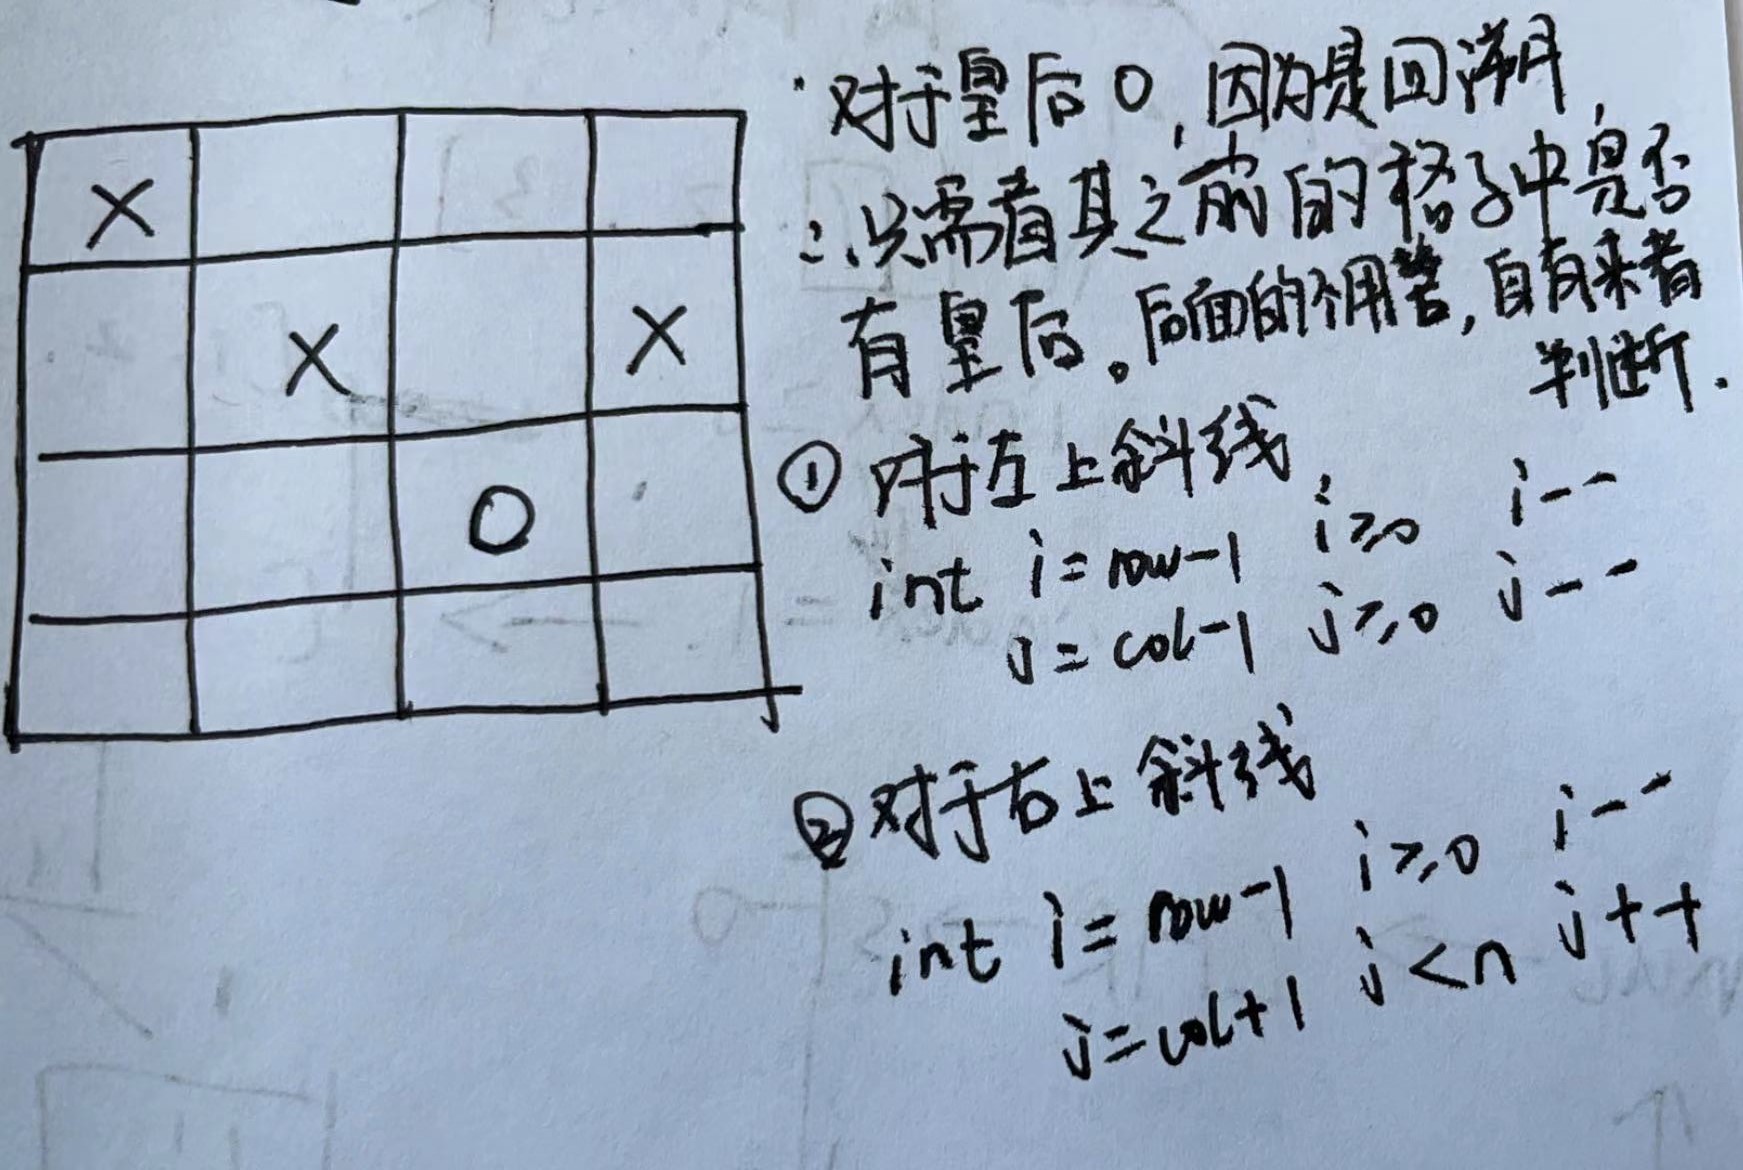 X
X X
O
· 对于皇后O,因为是回溯,
∴只需看其之前的格子中是否
有皇后。后面的不用管,自有来者
判断.
① 对于左上斜线,
int i=row-1 i≥0 i--
j=col-1 j≥0 j--
② 对于右上斜线
int i=row-1 i≥0 i--
j=col+1 j<n j++